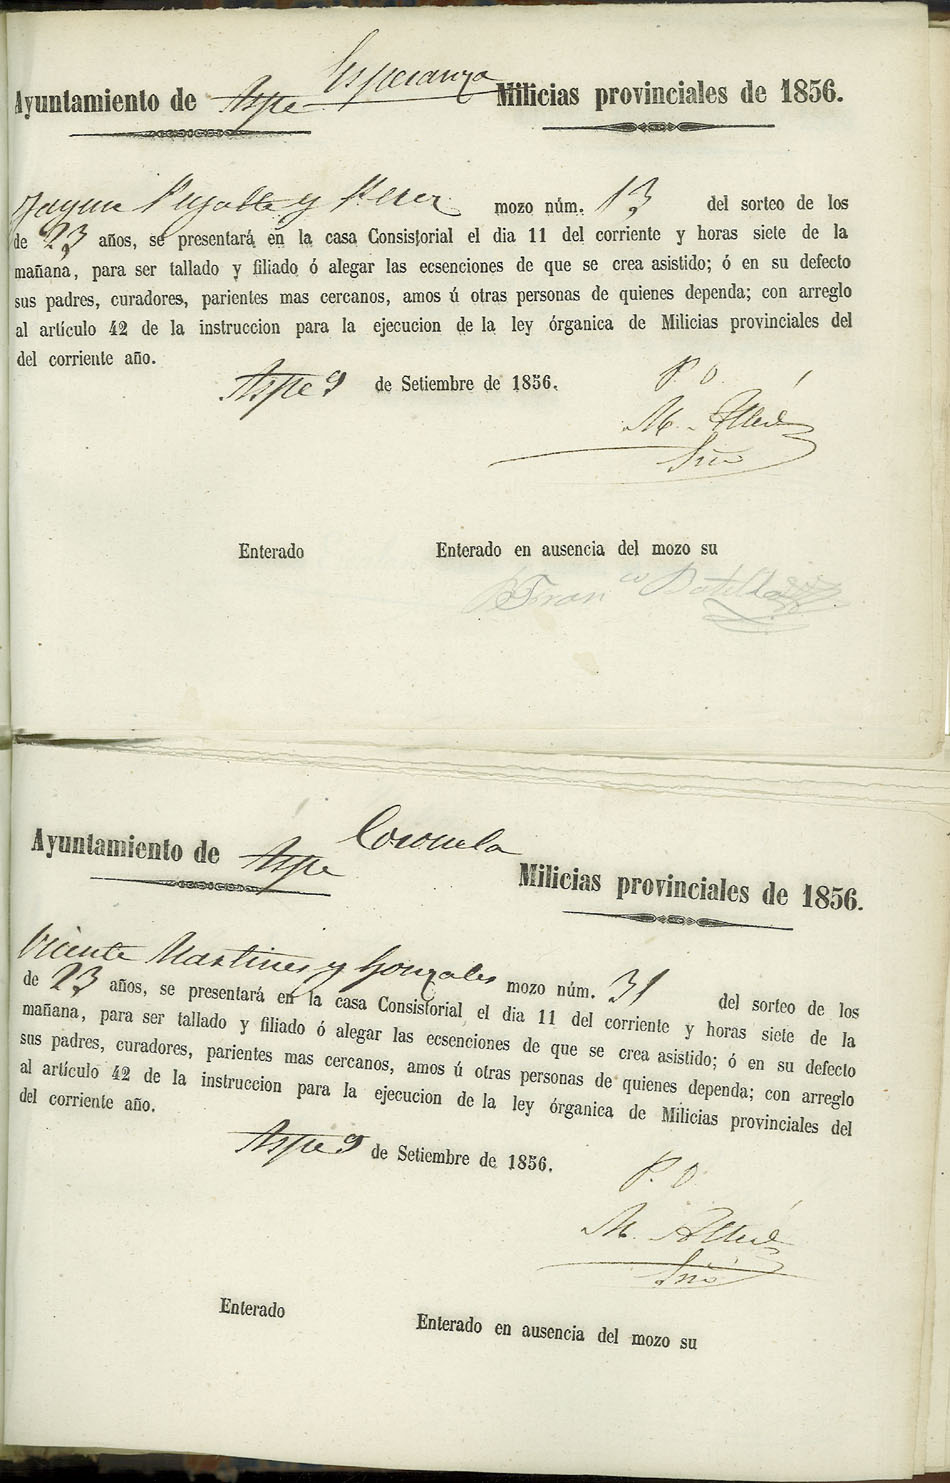 Esperanza
Ayuntamiento de Aspe Milicias provinciales de 1856.
Jayme Pujalte y Perez mozo núm. 13 del sorteo de los
de 23 años, se presentará en la casa Consistorial el dia 11 del corriente y horas siete de la
mañana, para ser tallado y filiado ó alegar las ecsenciones de que se crea asistido; ó en su defecto
sus padres, curadores, parientes mas cercanos, amos ú otras personas de quienes dependa; con arreglo
al artículo 42 de la instruccion para la ejecucion de la ley órganica de Milicias provinciales del
del corriente año.
Aspe 9 de Setiembre de 1856.
P. O.
M.
Srio
Enterado Enterado en ausencia del mozo su
Franco Botella
Coronela
Ayuntamiento de Aspe Milicias provinciales de 1856.
Vicente Martines y Gonzales mozo núm. 31 del sorteo de los
de 23 años, se presentará en la casa Consistorial el dia 11 del corriente y horas siete de la
mañana, para ser tallado y filiado ó alegar las ecsenciones de que se crea asistido; ó en su defecto
sus padres, curadores, parientes mas cercanos, amos ú otras personas de quienes dependa; con arreglo
al artículo 42 de la instruccion para la ejecucion de la ley órganica de Milicias provinciales del
del corriente año.
Aspe 9 de Setiembre de 1856.
P. O.
M.
Srio
Enterado Enterado en ausencia del mozo su